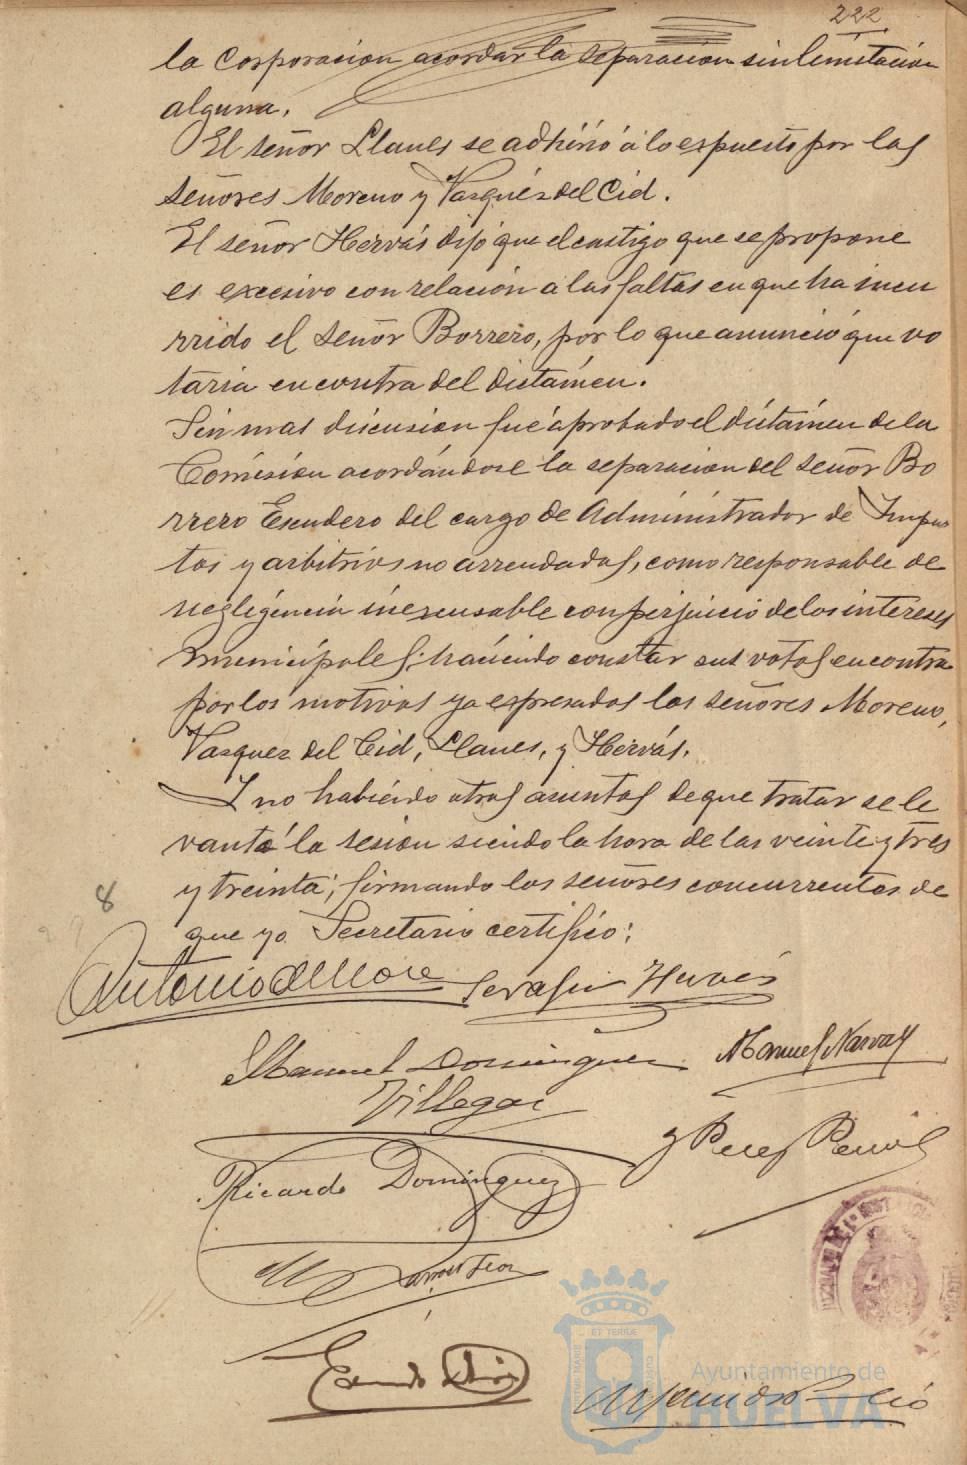 222
la Corporacion acordar la separacion sin limitacion
alguna.
El señor Llanes se adhirió á lo espuesto por los
señores Moreno y Vazquéz del Cid.
El señor Hervás dijó que el castigo que se propone
es excesivo con relación a las faltas en que ha incu
rrido el señor Borrero, por lo que anunció que vo
taria en contra del dictámen.
Sin mas discusion fué aprobado el dictámen de la
Comision acordándose la separacion del señor Bo
rrero Escudero del cargo de Administrador de Impues
tos y arbitrios no arrendados, como responsable de
negligéncia inexcusable con perjuicio de los intereses
municipales; haciéndo constar sus votos en contra
por los motivos ya espresados los señores Moreno,
Vazquez del Cid, Llanes, y Hervás.
Y no habiéndo otros asuntos de que tratar se le
vantó la sesion siendo la hora de las veinte y tres
y treinta; firmando los señores concurrentes de
8
que yo Secretario certifico:
Antonio de Mora Serafin Hervás
Manuel Dominguez Manuel Narvaez
Villegas
y Perez
Ricardo Dominguez
ET TERRAE
Ayuntamiento de
HUELVA